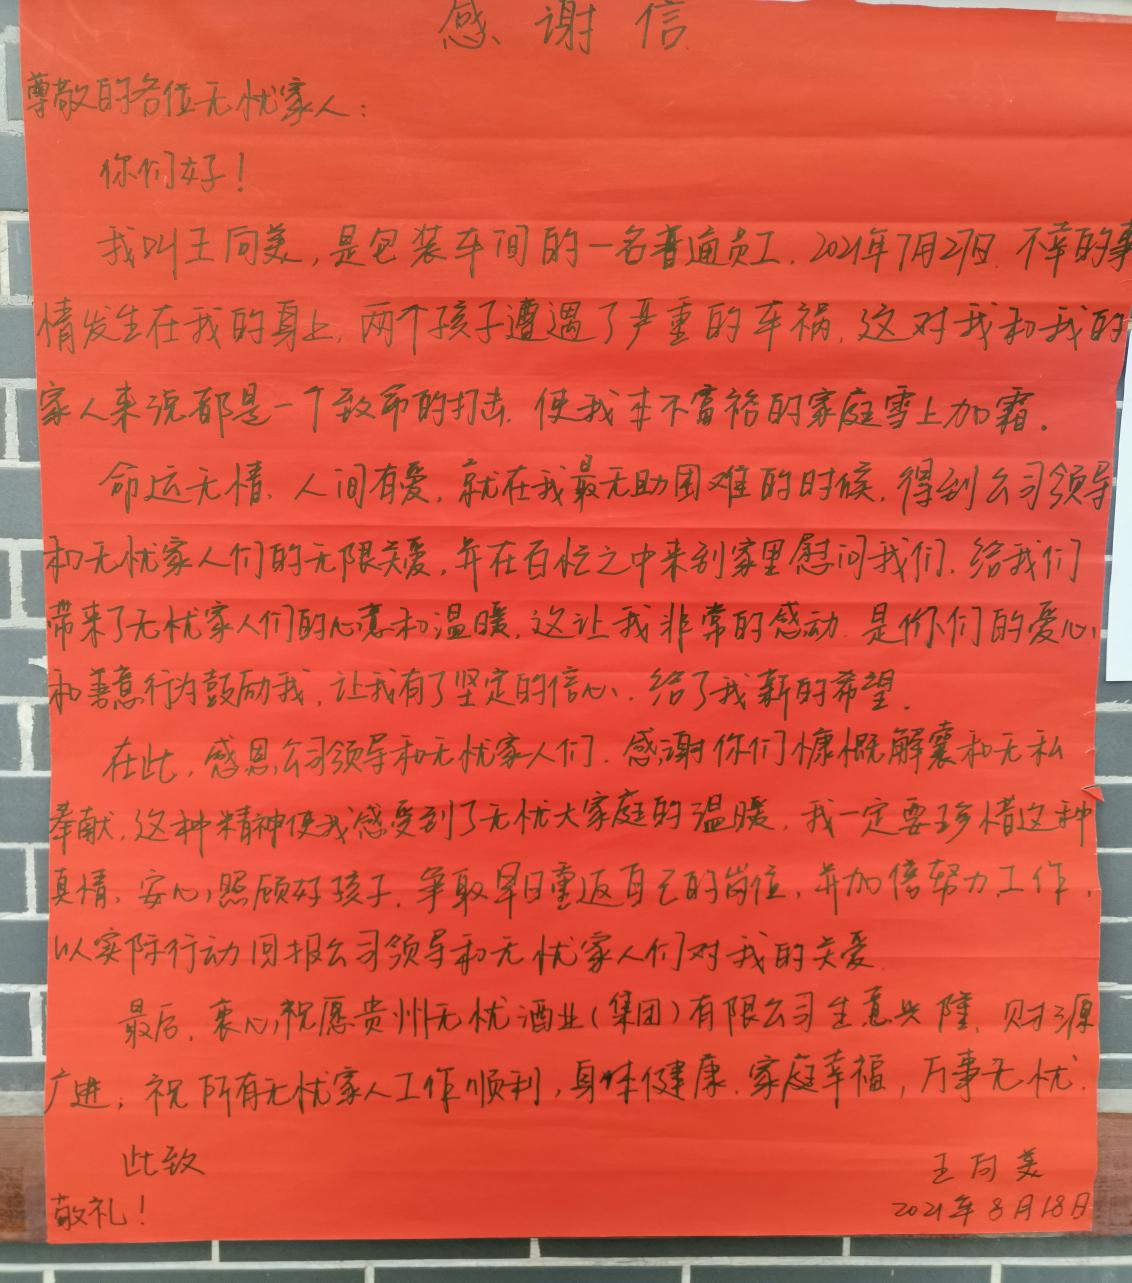 感谢信
尊敬的各位无忧家人：
你们好！
我叫王向美，是包装车间的一名普通员工．2021年7月27日．不幸的事
情发生在我的身上，两个孩子遭遇了严重的车祸，这对我和我的
家人来说都是一个致命的打击．使我本不富裕的家庭雪上加霜。
命运无情、人间有爱，就在我最无助困难的时候，得到公司领导
和无忧家人们的无限关爱，并在百忙之中来到家里慰问我们．给我们
带来了无忧家人们的心意和温暖，这让我非常的感动．是你们的爱心
和善意行为鼓励我，让我有了坚定的信心、给了我新的希望．
在此，感恩公司领导和无忧家人们．感谢你们慷慨解囊和无私
奉献，这种精神使我感受到了无忧大家庭的温暖，我一定要珍惜这种
真情、安心照顾好孩子．争取早日重返自己的岗位，并加倍努力工作．
以实际行动回报公司领导和无忧家人们对我的关爱．
最后，衷心祝愿贵州无忧酒业（集团）有限公司生意兴隆、财源
广进；祝所有无忧家人工作顺利，身体健康．家庭幸福，万事无忧．
此致
王向美
敬礼！
2021年8月18日